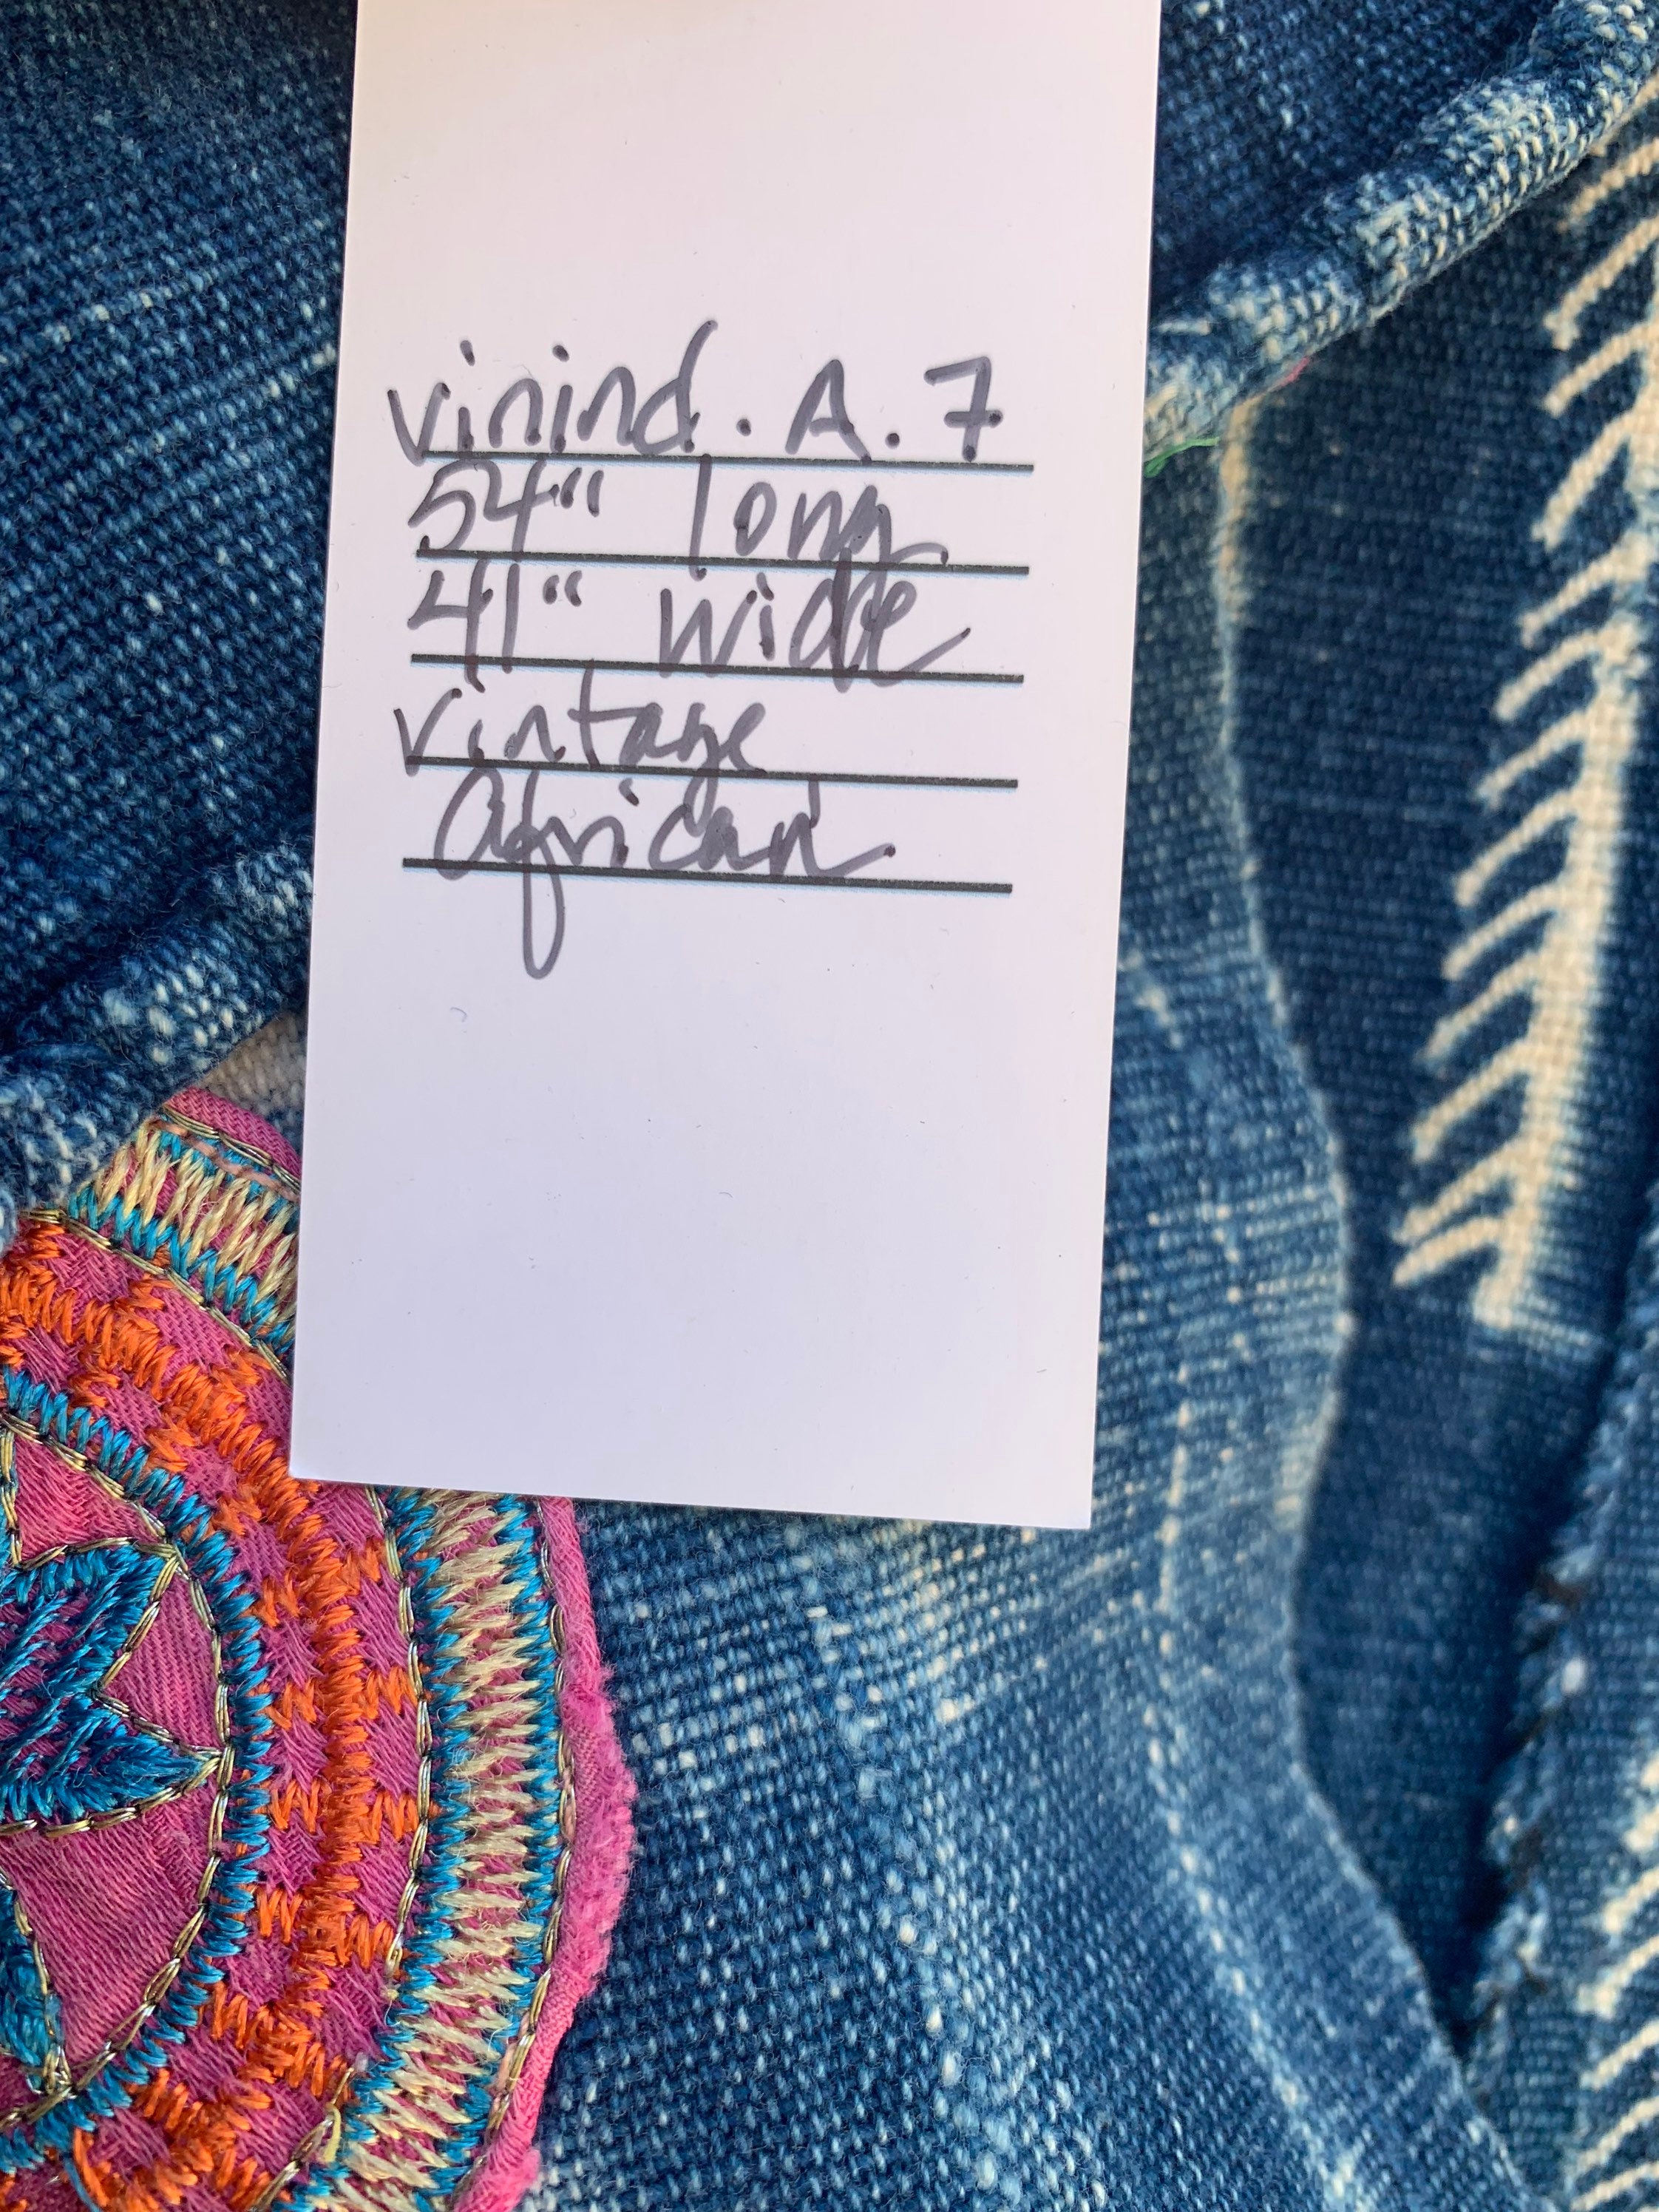 vinind. A. 7
54" long
41" wide
vintage
African.